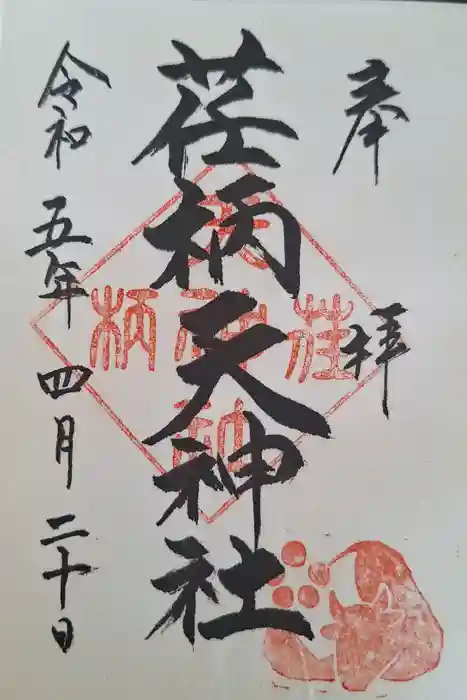 奉拝
荏柄天神社
令和五年四月二十日
荏
柄